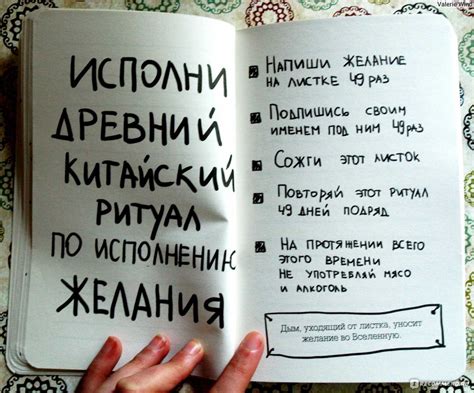 Valerie Wind
ИСПОЛНИ
ДРЕВНИЙ
КИТАЙСКИЙ
РИТУАЛ
ПО ИСПОЛНЕНИЮ
ЖЕЛАНИЯ
НАПИШИ ЖЕЛАНИЕ
НА ЛИСТКЕ 49 РАЗ
ПОДПИШИСЬ СВОИМ
ИМЕНЕМ ПОД НИМ 49 РАЗ
СОЖГИ ЭТОТ ЛИСТОК
ПОВТОРЯЙ ЭТОТ РИТУАЛ
49 ДНЕЙ ПОДРЯД
НА ПРОТЯЖЕНИИ ВСЕГО
ЭТОГО ВРЕМЕНИ
НЕ УПОТРЕБЛЯЙ МЯСО
И АЛКОГОЛЬ
Дым, уходящий от листка, уносит
желание во Вселенную.